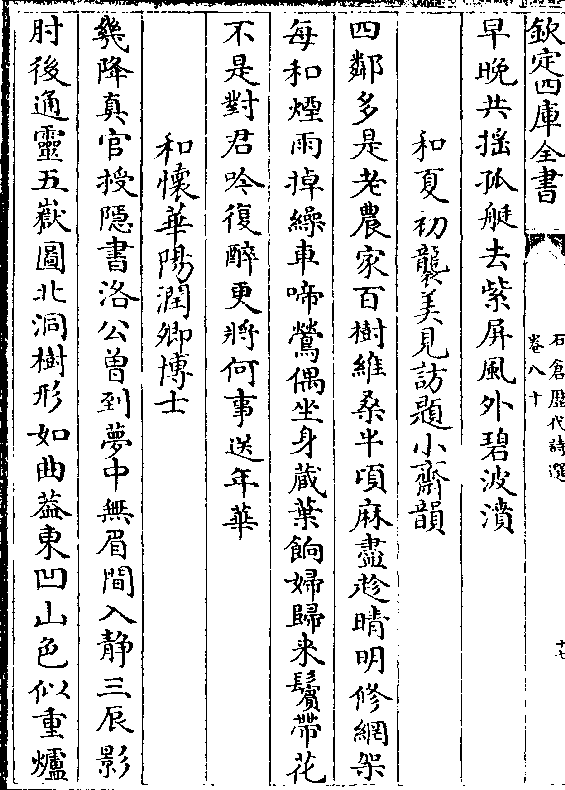 欽定四庫全書
石倉歷代詩選
卷八十
十七
早晚共揺孤艇去紫屏風外碧波濆
和夏初襲美見訪題小齋韻
四鄰多是老農家百樹維桑半頃麻盡趁晴明修網架
每和煙雨掉繰車啼鶯偶坐身藏葉餉婦歸来鬢帶花
不是對君吟復醉更將何事送年華
和懷華陽潤卿博士
幾降真官授隱書洛公曾到夢中無眉間入静三辰影
肘後通靈五嶽圖北洞樹形如曲葢東凹山色似重爐